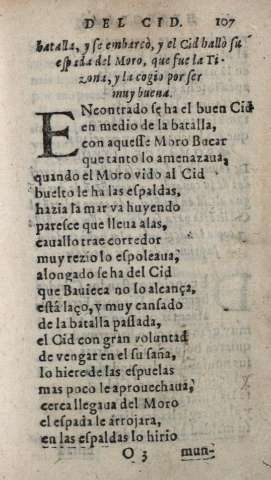 DEL CID. 107
batalla, y se embarcò, y el Cid hallò su
espada del Moro, que fue la Ti-
zona, y la cogio por ser
muy buena.
ENcontrado se ha el buen Cid
en medio de la batalla,
con aquesse Moro Bucar
que tanto lo amenazaua,
quando el Moro vido al Cid
buelto le ha las espaldas,
hazia la mar va huyendo
paresce que lleua alas,
cauallo trae corredor
muy rezio lo espoleaua,
alongado se ha del Cid
que Bauieca no lo alcança,
està laço, y muy cansado
de la batalla passada,
el Cid con gran voluntad
de vengar en el su saña,
lo hiere de las espuelas
mas poco le aprouechaua,
cerca llegaua del Moro
el espada le arrojara,
en las espaldas lo hirio
O 3 mun-